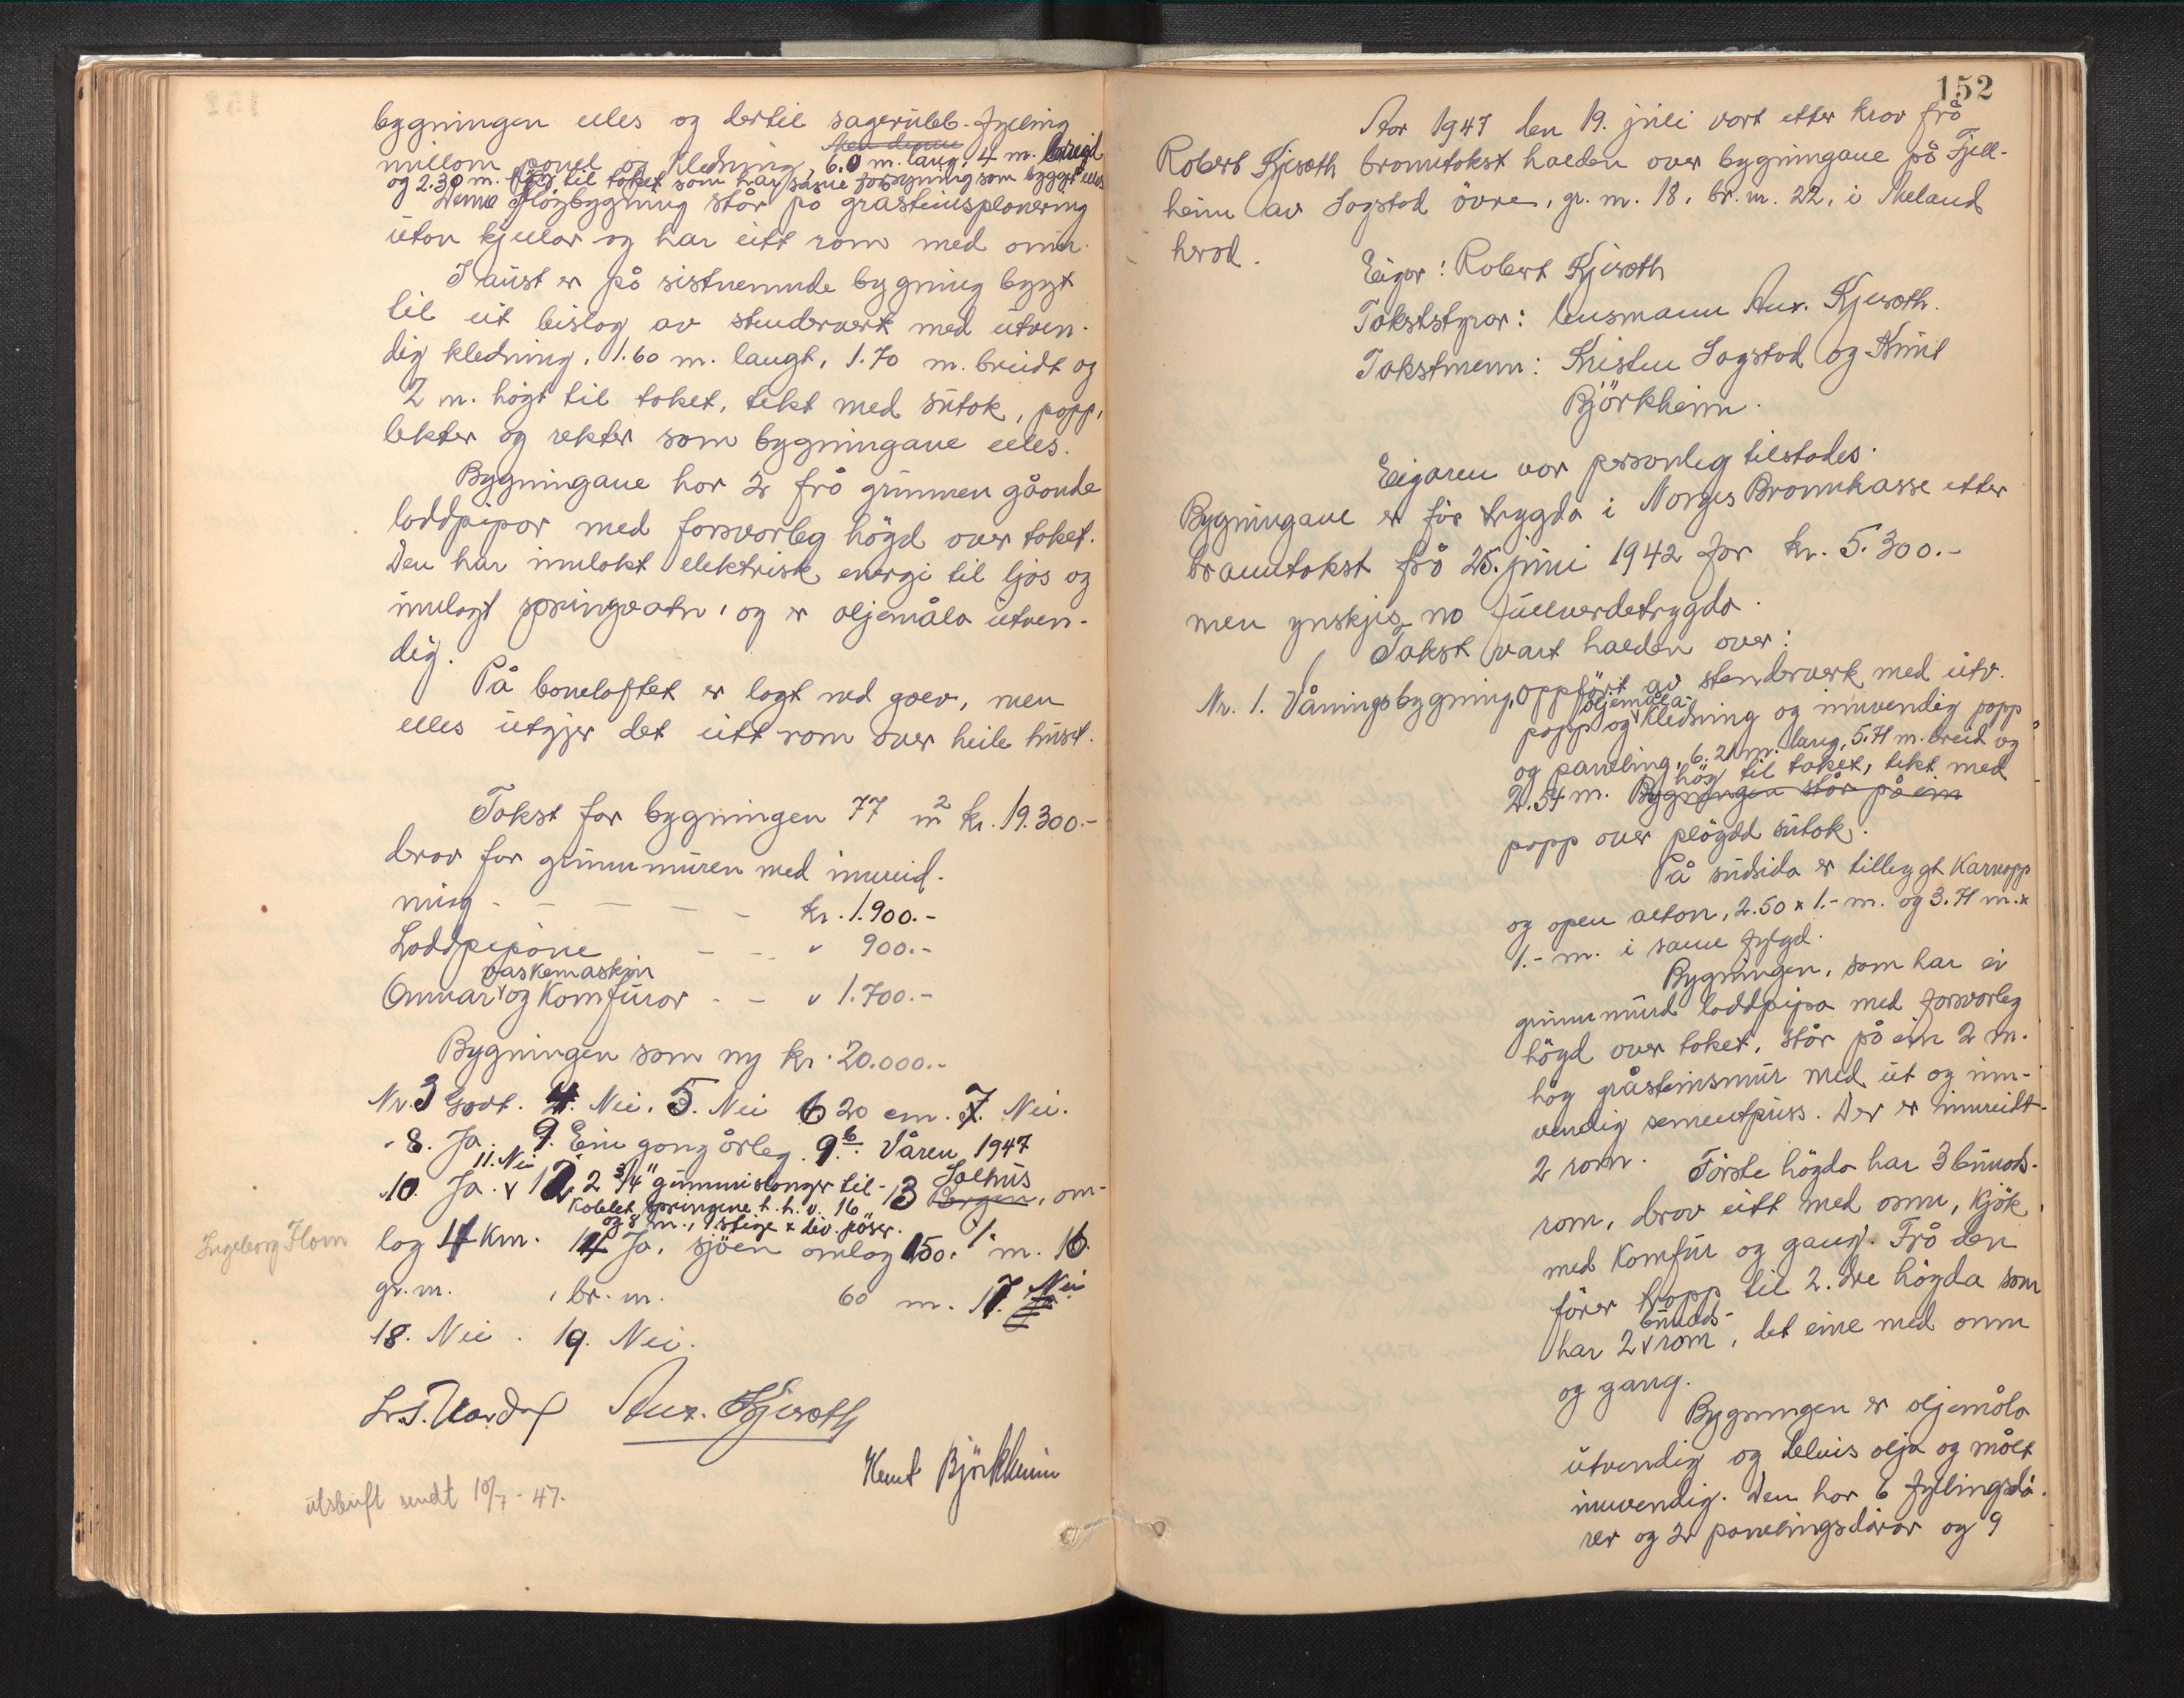 bygningen elles og dertil sagerubb-fylling
millom panel og kledning, 6.0 m. lang, 4 m. breid
og 2.30 m. høg til taket som har same forsyning som bygget elles
Denne tilbygning står på gråsteinsplanering
utan kjellar og har eitt rom med omn.
I aust er på sistnemnde bygning bygt
til eit bislag av stenderverk med utven-
dig kledning, 1.60 m. langt, 1.70 m. breidt og
2 m. högt til taket, tekt med sutak, papp,
lekter og rekter som bygningane elles.
Bygningane har 2 frå grunnen gåande
loddpipor med forsvarleg högd over taket.
Den har innlakt elektrisk energi til ljos og
innlagt springvatn, og er oljemåla utven-
dig.
På boneloftet er lagt ned golv, men
elles utgjer det eitt rom over heile huset.
Takst for bygningen 77 m² kr. 19.300.-
derav for grunnmuren med innreid-
ning - - - - - kr. 1.900.-
Loddpipone - - " 900.-
vaskemaskin
Omnar og Komfuror - - " 1.700.-
Bygningen som ny kr. 20.000.-
Nr. 3 Godt. 4. Nei. 5. Nei 6 20 cm. 7. Nei.
- 8. Ja. 9. Ein gong årleg. 9b. Våren 1947
11. Nei Salhus
10. Ja. 12. 2 3/4" gummislangar til- 13 Bergen, om-
koblet springene h. h. v. 16
og 8 m., 1 stige x div. pöser.
lag 4 Km. 14 Ja, sjöen omlag 150. m. 16.
Ingeborg Hom
gr. m. , br. m. 60 m. 17. Nei
18. Nei. 19. Nei.
Aux. Kjersoth
Knut Björkheim
utskrift sendt 10/7-47.
152
Aar 1947 den 19. juli vart etter krav frå
Robert Kjersoth branntakst halden over bygningane på Fjell-
heim av Sagstad övre, gr. m. 18, br. m. 22, i Meland
herad.
Eigar: Robert Kjersoth
Takststyrar: lensmann Aux. Kjersoth.
Takstmenn: Kristen Sagstad og Knut
Björkheim.
Eigaren var personleg tilstades.
Bygningane er för trygda i Norges Brannkasse etter
branntakst frå 25. juni 1942 for kr. 5.300.-
men ynskjes no fullverdetrygda.
Takst vart halden over:
Nr. 1. Våningsbygning, oppfört av stenderverk med utv.
oljemåla-
papp og kledning og innvendig papp
og paneling, 6.21 m. lang, 5.71 m. breid og
höy til taket, tekt med
2.54 m. Bygningen står på ein
papp over plögdd sutak.
På sudsida er tilleggt Karnapp
og open altan, 2.50 x 1.- m. og 3.71 m. x
1.- m. i same fylgd.
Bygningen, som har ei
grunnmurd loddpipa med forsvarleg
högd over taket, står på ein 2 m.
hög gråsteinsmur med ut og inn-
vendig sementpuss. Der er innreidt
2 rom. Förste högda har 3 bunads-
rom, derav eitt med omn, kjök
med Komfur og gang. Frå den
förer tropp til 2. dre högda som
bunads-
har 2 rom, det eine med omn
og gang.
Bygningen er oljemåla
utvendig og delvis olja og målt
innvendig. Den har 6 fyllingsdö-
rer og 2 panelingsdörar og 9